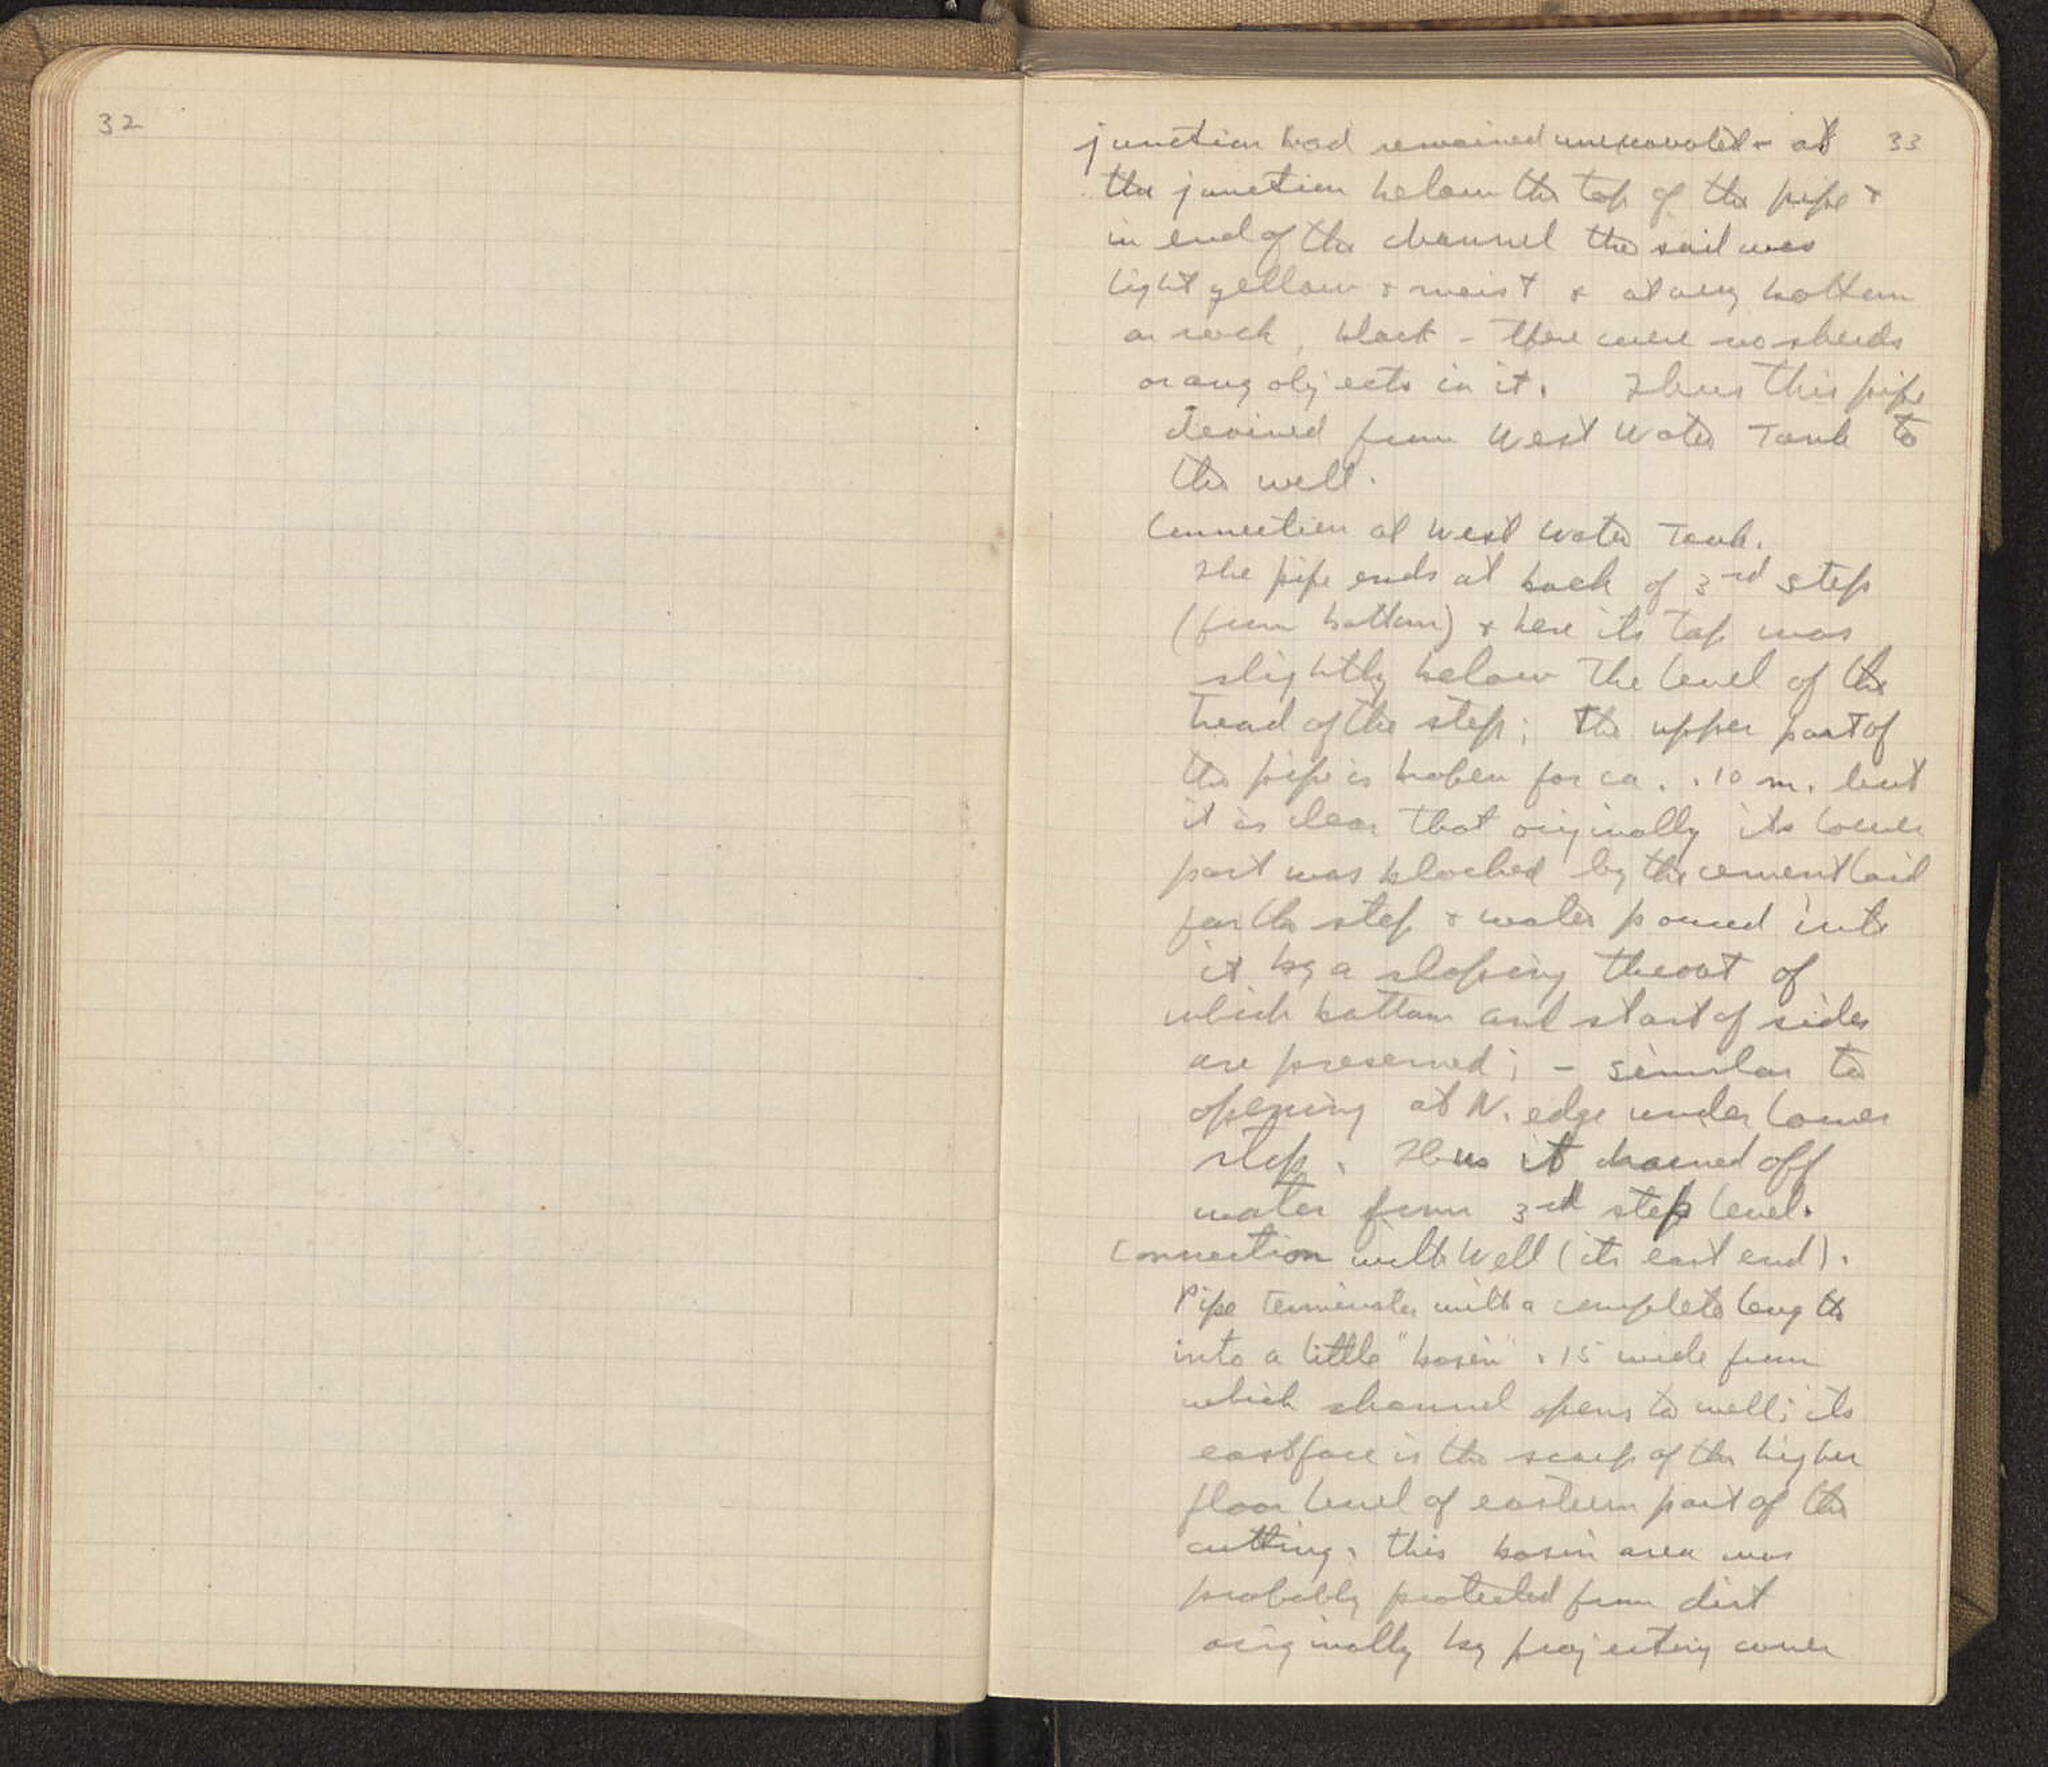 32
33
junction had remained unexcavated - at
the junction below the top of the pipe +
in end of the channel the soil was
light yellow + moist + at very bottom
on rock, black - there were no sherds
or any objects in it. Thus this pipe
drained from West Water Tank to
the well.
Connection at West Water Tank.
The pipe ends at back of 3rd step
(from bottom) + here its top was
slightly below the level of the
tread of the step; the upper part of
the pipe is broken for ca. .10 m. but
it is clear that originally its lower
part was blocked by the cement laid
for the step + water poured into
it by a sloping throat of
which bottom and start of sides
are preserved; - similar to
opening at N. edge under lower
step. Thus it drained off
water from 3rd step level.
Connection with Well (its east end).
Pipe terminates with a complete length
into a little "basin" .15 wide from
which channel opens to well; its
east face is the scarp of the higher
floor level of eastern part of the
cutting. This basin area was
probably protected from dirt
originally by projecting cover